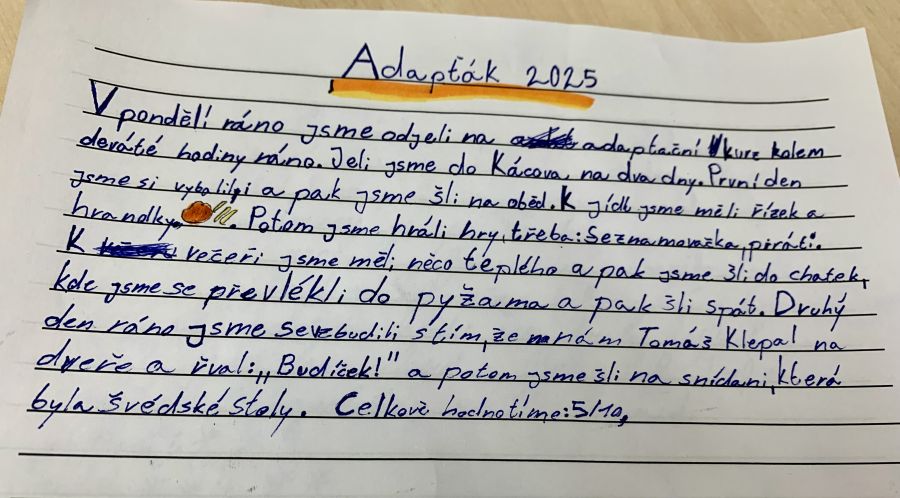 Adapťák 2025
V pondělí ráno jsme odjeli na adaptační kurz kolem
deváté hodiny ráno. Jeli jsme do Kácova na dva dny. První den
jsme si vybalili a pak jsme šli na oběd. K jídlu jsme měli řízek a
hranolky. Potom jsme hráli hry, třeba: Seznamovačka, piráti.
K večeři jsme měli něco teplého a pak jsme šli do chatek,
kde jsme se převlékli do pyžama a pak šli spát. Druhý
den ráno jsme se vzbudili s tím, že nám Tomáš Klepal na
dveře a řval: „Budíček!" a potom jsme šli na snídani, která
byla švédské stoly. Celkově hodnotíme: 5/10,